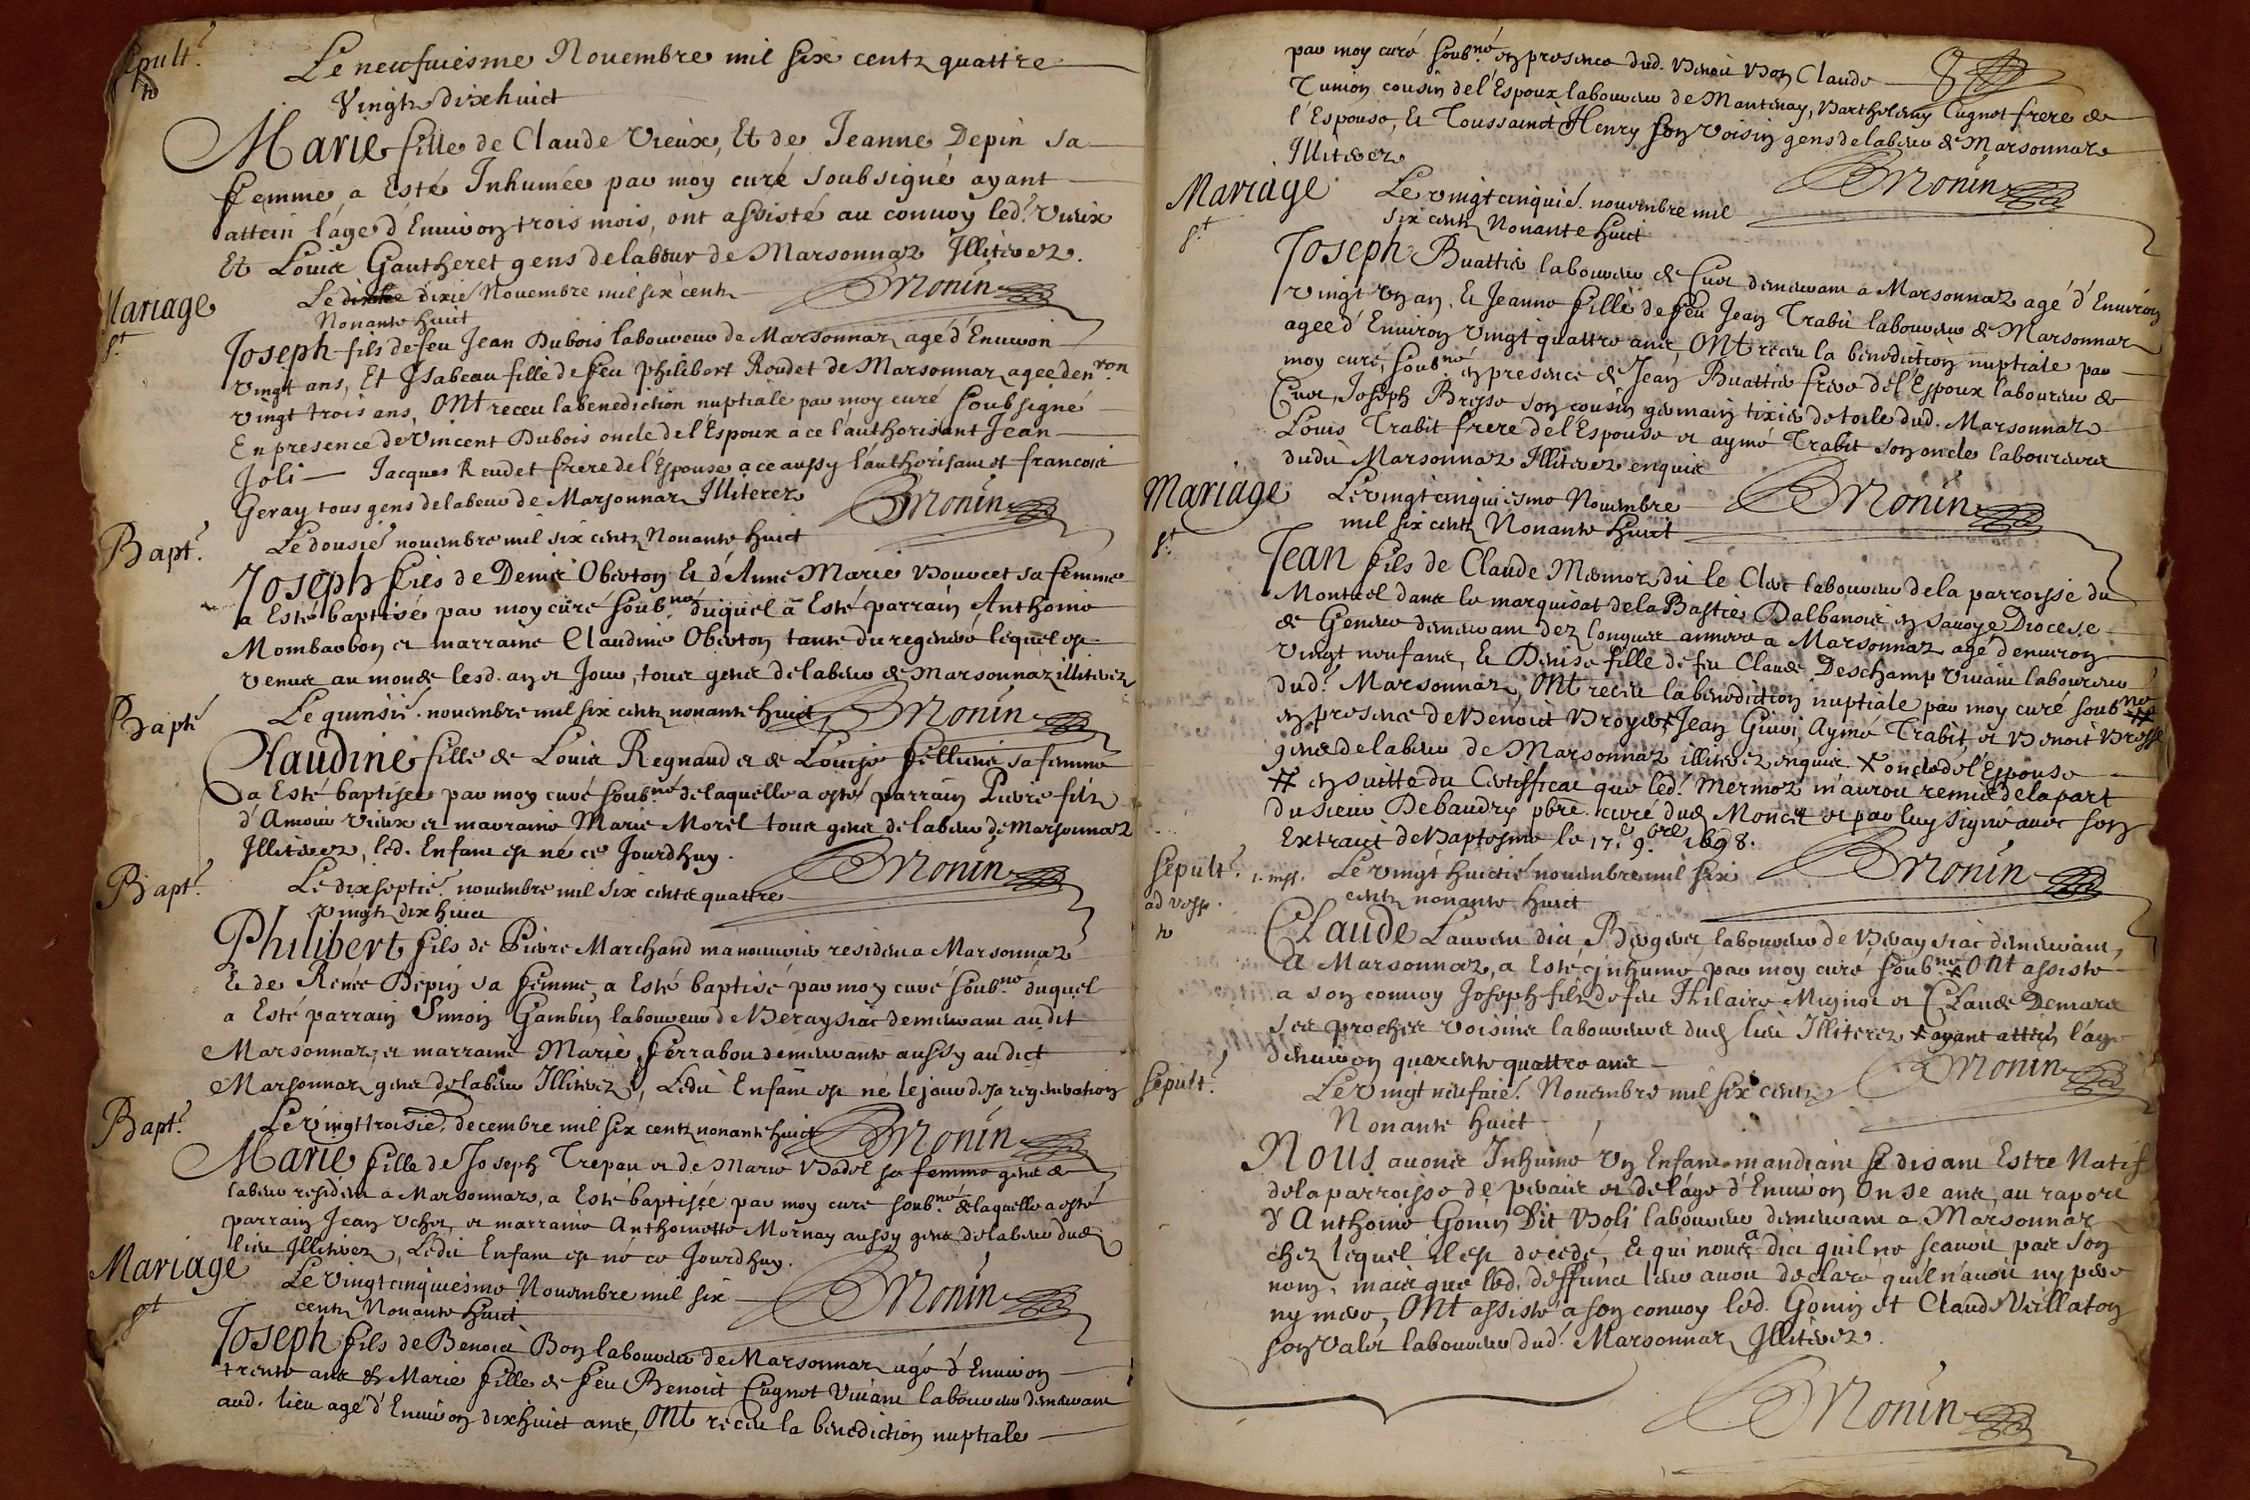 Sepult.e
Le neufuiesme Novembre mil six centz quattre
Vingtz dixhuict
Marie fille de Claude Vieux, Et de Jeanne Depin sa
femme, a Esté Inhumée par moy curé soubsigné ayant
attein l'age d'Enuiron trois mois, ont assisté au conuoy led.t Vieux
Et Louis Gautheret gens de labeur de Marsonnaz Illiterez.
Mariage
Le dixié Novembre mil six centz
Nonante huict
BMonin
Joseph fils de feu Jean Dubois laboureur de Marsonnaz agé d'Enuiron
vingt ans, Et Isabeau fille de feu Philibert Roudet de Marsonnaz agée d'en.ron
vingt trois ans, Ont receu la benediction nuptiale par moy curé soubsigné
En presence de Vincent Dubois oncle de l'Espoux a ce l'authorisant Jean
Joli Jacques Reudet frere de l'Espouse a ce aussy l'authorisant et francois
Geray tous gens de labeur de Marsonnaz Illiterez
BMonin
Bapt.e
Le dousié novembre mil six centz Nonante huict
Joseph fils de Denis Oberton Et d'Anne Marie Bouvcet sa femme
a Esté baptisé par moy curé soub.né duquel a Esté parrain Anthoine
Mombarbon et marraine Claudine Oberton tante du regeneré lequel est
venue au monde lesd. an et Jour, tous gens de labeur de Marsonnaz illiterez
Bapté
Le quinsié. novembre mil six centz nonante huict
BMonin
Claudine fille de Louis Regnaud et de Louise felline sa femme
a Esté baptisée par moy curé soub.né de laquelle a esté parrain Pierre fils
d'Amour vieux et marraine Marie Morel tous gens de labeur de Marsonnaz
Illiterez, led. Enfant est né ce Jourdhuy.
BMonin
Bapt.e
Le dixseptié. novembre mil six centz quattre
vingtz dix huict
Philibert fils de Pierre Marchand manouvrier resident a Marsonnaz
Et de Renée Depin sa femme, a Esté baptisé par moy curé soub.né duquel
a Esté parrain Simon Gambin laboureur de Beraysiat demeurant audit
Marsonnaz, et marraine Marie ferrabou demeurante aussy audict
Marsonnaz gens de labeur Illiterez, Ledit Enfant est né le jour de sa regeneration
Bapt.e
Le vingttroisié. decembre mil six centz nonante huict
BMonin
Marie fille de Joseph Trepau et de Marie Badol sa femme gens de
labeur resident a Marsonnaz, a Esté baptisée par moy curé soub.né de laquelle a esté
parrain Jean Ucher et marraine Anthoinette Mornay aussy gens de labeur dud.
lieu Illiterez, Ledit Enfant est né ce Jourdhuy.
Mariage
Le vingtcinquiesme Novembre mil six
centz Nonante huict
BMonin
Joseph fils de Benoict Bon laboureur de Marsonnaz agé d'Enuiron
trente ans Et Marie fille de feu Benoict Cugnot Vivant laboureur demeurant
aud. lieu agé d'Enuiron dixhuict ans, Ont receu la benediction nuptiale
par moy curé soub.né en presence dud. Benoit Bon Claude
Tunion cousin de l'Espoux laboureur de Mantenay, Bartholemy Cugnot frere de
l'Espouse, Et Toussainct Henry son voisin gens de labeur de Marsonnaz
Illiterez
BMonin
Mariage
Le vingtcinquié. novembre mil
six centz Nonante huict
Joseph Buattier laboureur de Cuet demeurant a Marsonnaz agé d'Enuiron
vingt un an, Et Jeanne fille de feu Jean Trabit laboureur de Marsonnaz
agee d'Enuiron vingt quattre ans, Ont receu la benediction nuptiale par
moy curé, soub.né en presence de Jean Buattier frere de l'Espoux laboureur de
Cuet, Joseph Brysse son cousin germain tixier de toile dud. Marsonnaz
Louis Trabit frere de l'Espouse et aymé Trabit son oncle laboureurs
dudit Marsonnaz Illiterez enquis
BMonin
Mariage
Le vingtcinquiesme Novembre
mil six centz Nonante huict
Jean fils de Claude Mermoz dit le Clerc laboureur de la parroisse du
Montcel dans le marquisat de la Bastie Dalbanois en Savoye Diocese
de Geneve demeurant dez longues années a Marsonnaz agé d'enuiron
vingt neuf ans, Et Denise fille de feu Claude Deschamp vivant laboureur
dud.t Marsonnaz, Ont receu la benediction nuptiale par moy curé soub.né #
en presence de Benoict Broyer, Jean Guioi, Aymé Trabit et Benoit Brysse
gens de labeur de Marsonnaz illiterez enquis x oncle de l'Espouse
# ensuitte du Certifficat que led.t Mermoz m'auroit remis de la part
du sieur Debaudry pbre. curé dud. Moncel et par luy signé avec son
Extraict de Baptesme le 17.e 9.bre 1698.
BMonin
Sepult.e
ad vesp.
Le vingthuictié novembre mil six
centz nonante huict
Claude Laurent dict Bergier laboureur de Beraysiat demeurant,
a Marsonnaz, a Esté Inhumé par moy curé soub.né x Ont assisté
a son convoy Joseph fils de feu Thilaire Mignot et Claude Demare
ses proches voisins laboureurs dud. lieu Illiterez x ayant attein l'age
denuiron quarente quattre ans
BMonin
Sepult.e
Le vingt neufuié. Novembre mil six centz
Nonante huict
Nous avons Inhumé Un Enfant mandiant se disant Estre Natif
de la parroisse de et de l'age d'Enuiron Onse ans, au raport
d'Anthoine Gonin Dit Boli laboureur demeurant a Marsonnaz
chez lequel il est decedé, Et qui nous a dict quil ne scauoit pas son
nom, mais que led. deffunct leur auoit declaré quil n'auoit ny pere
ny mere, Ont assisté a son convoy led. Gonin et Claude Veillaton
son valet laboureur dud.t Marsonnaz Illiterez.
BMonin